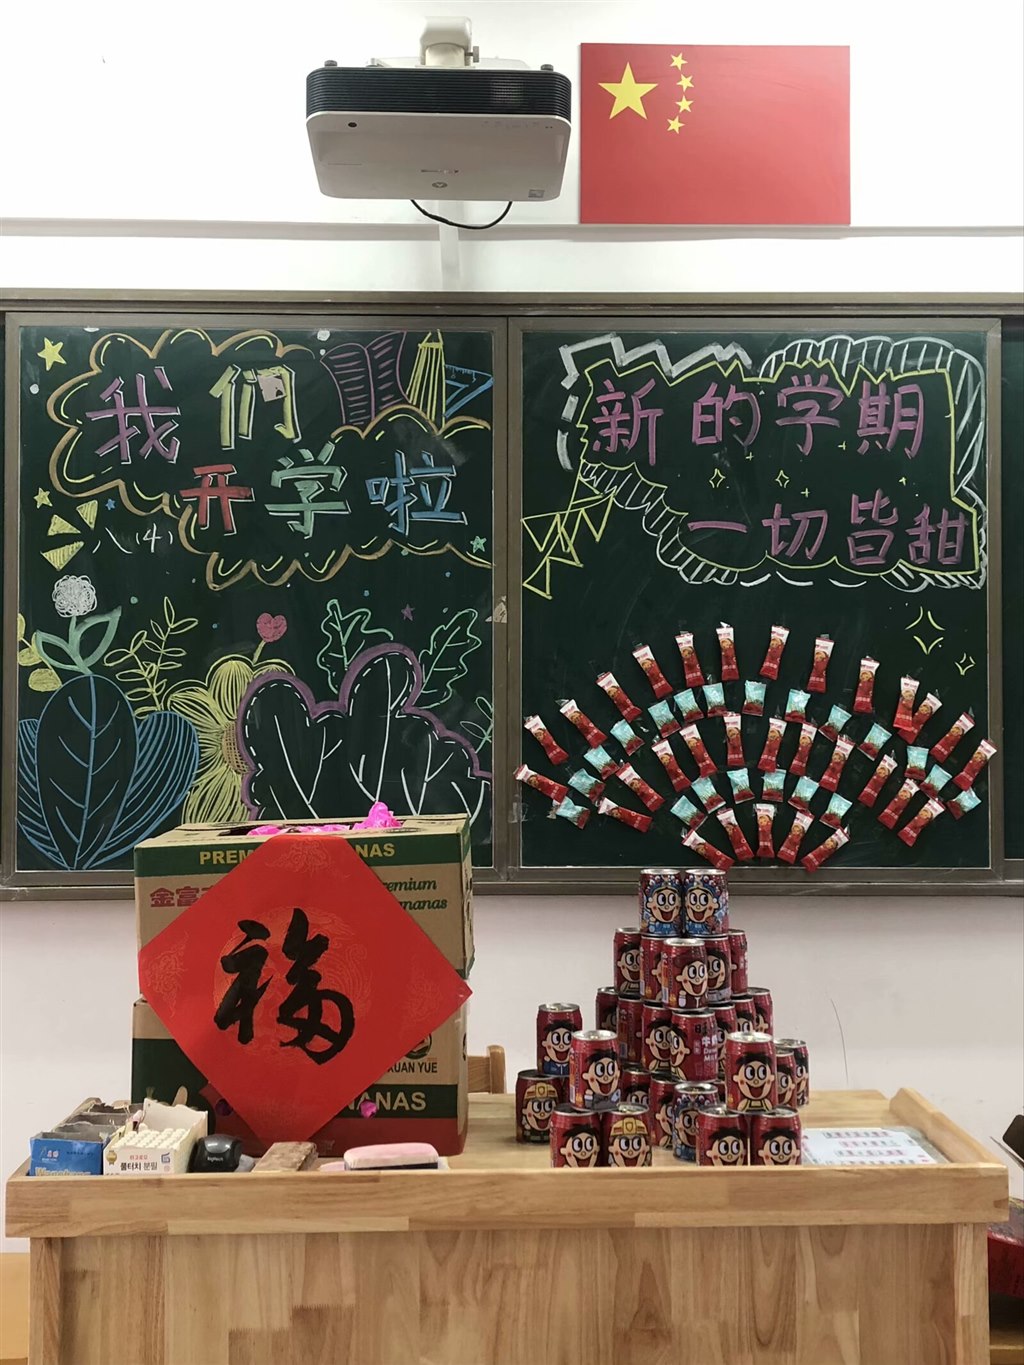 我们
开学啦
八(4)
新的学期
一切皆甜
PREM
NAS
金富
remium
nanas
福
XUAN YUE
NANAS
풀터치 분필